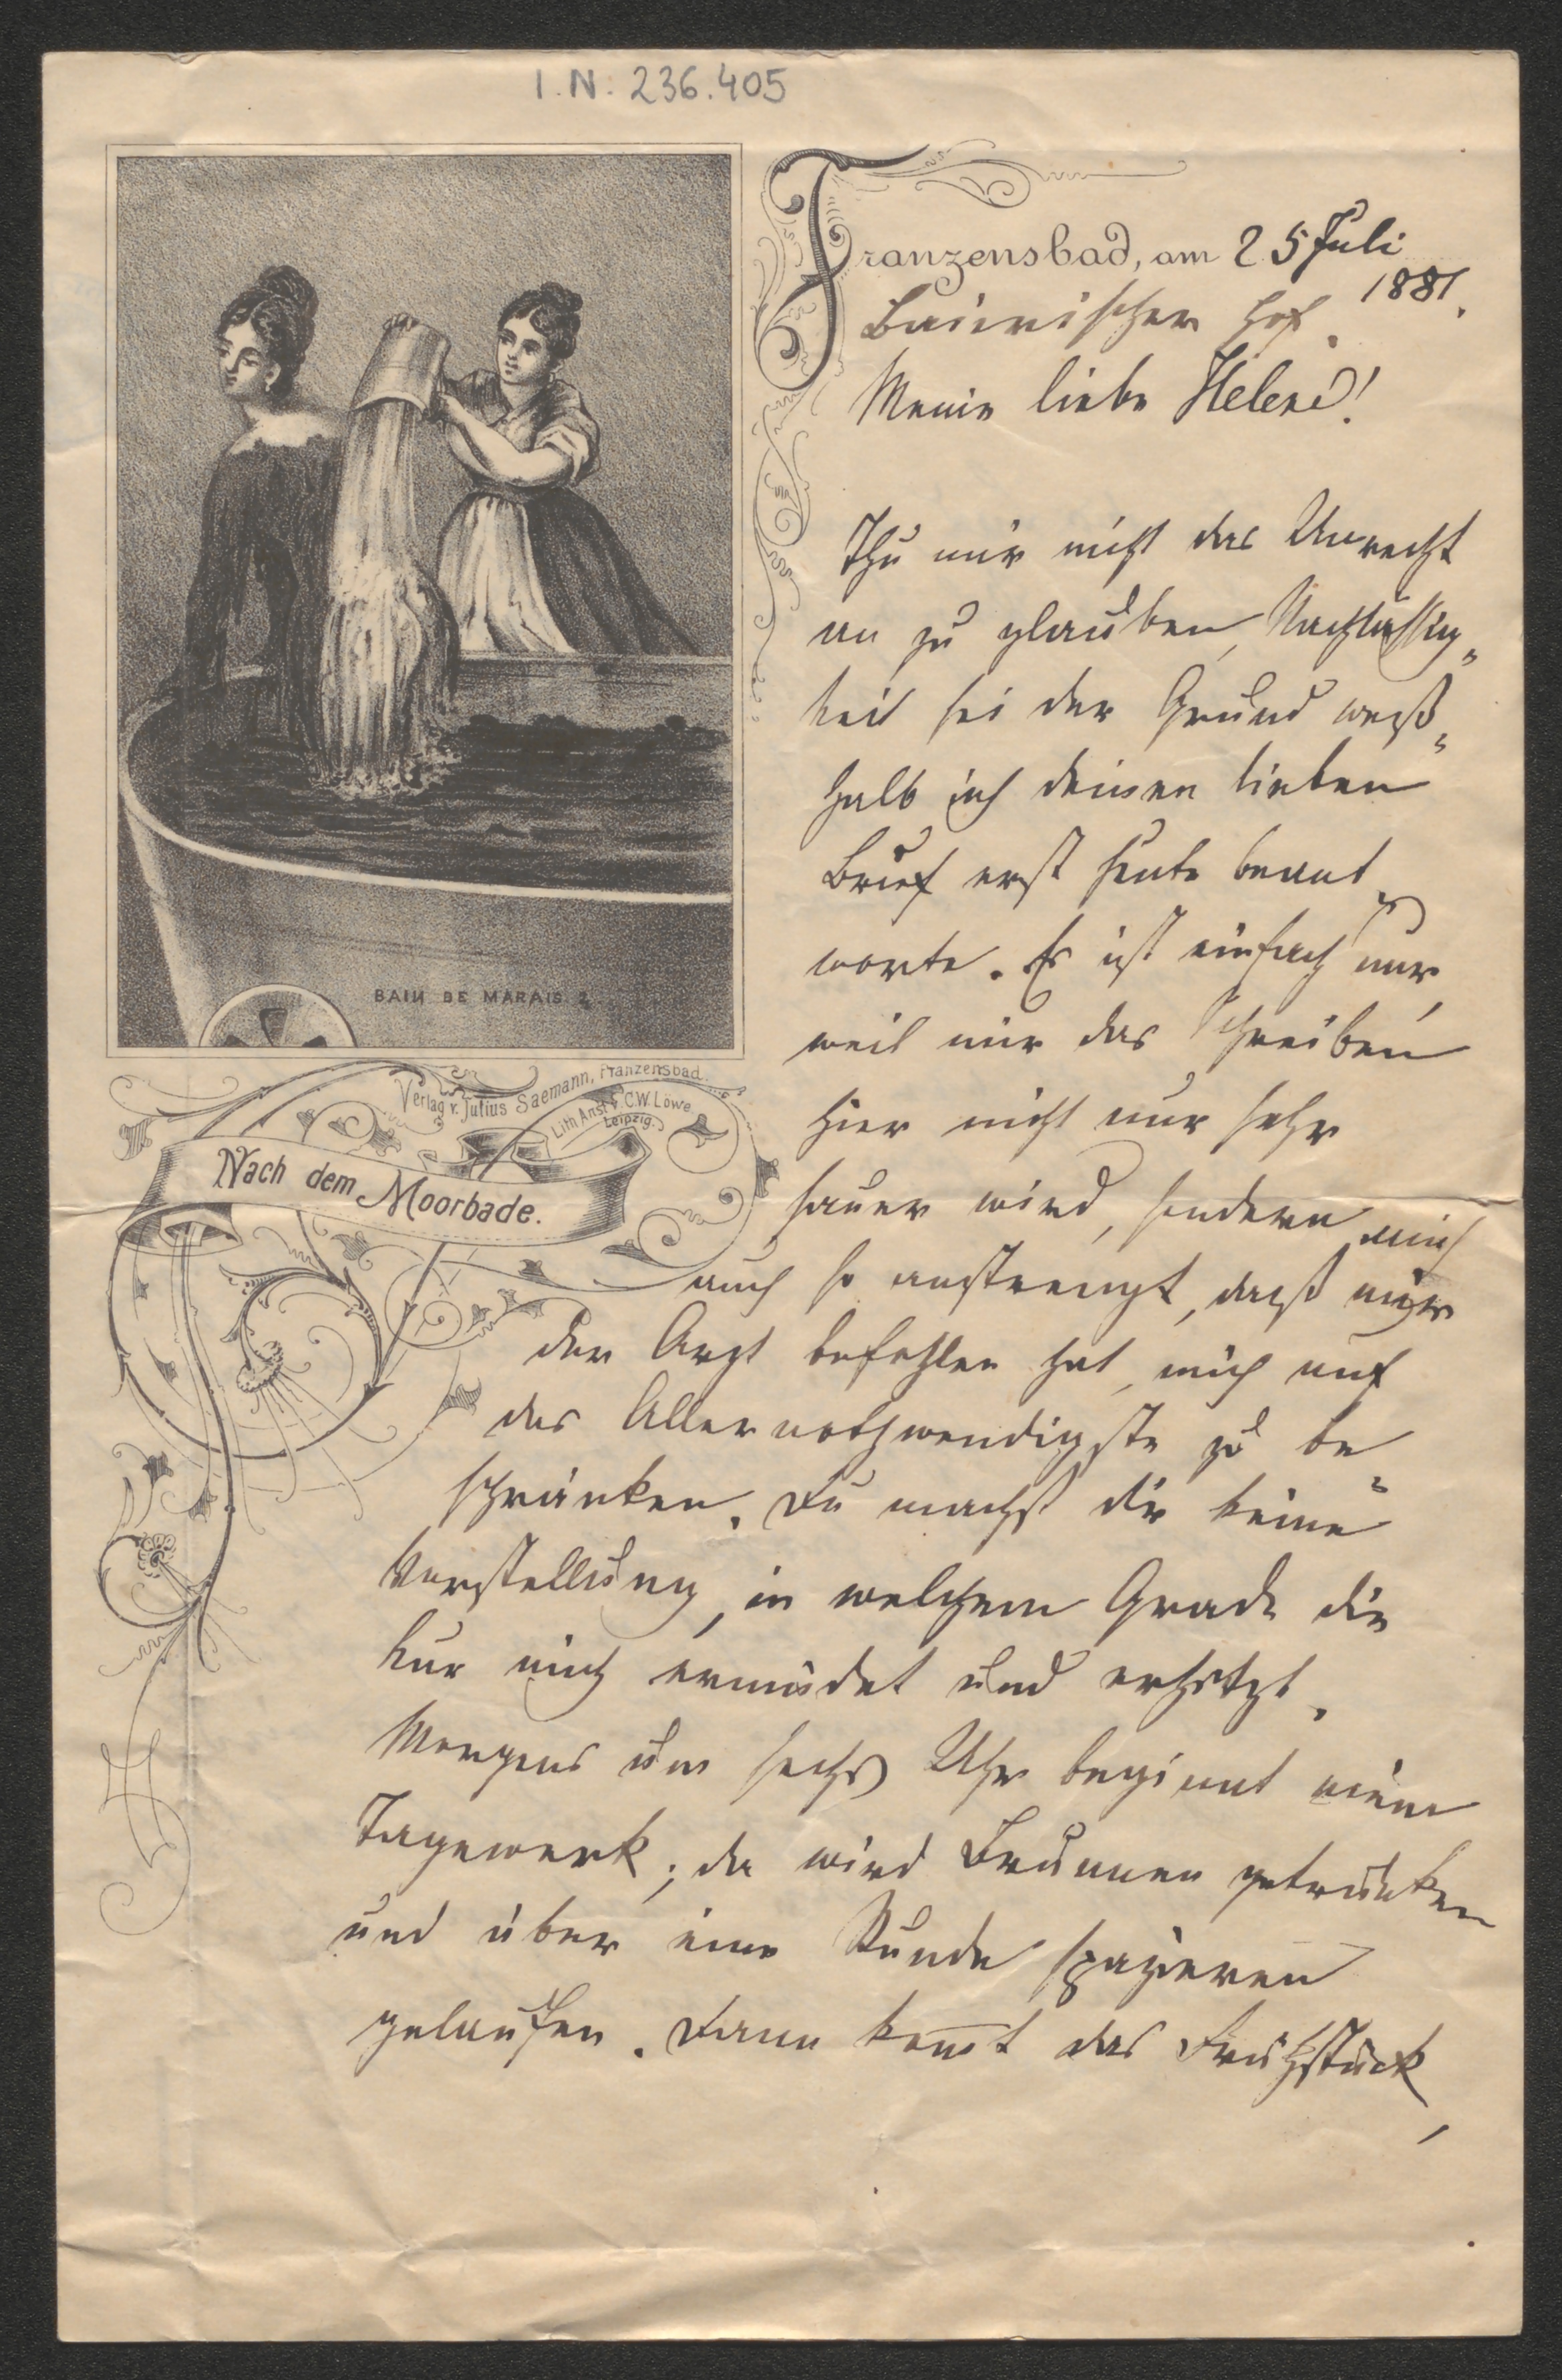 I.N: 236.405
Franzensbad, am 25 Juli
1881.
Bairischer Hof.
Meine liebe Helene!
Thu mir nicht das Unrecht
an zu glauben, Nachlässig„
keit sei der Grund weß„
halb ich deinen lieben
Brief erst heute beant„
worte. Es ist einfach nur
weil mir das Schreiben
hier nicht nur sehr
sauer wird, sondern mich
auch so anstrengt, daß mir
der Arzt befohlen hat, mich auf
das Allernothwendigste zu be„
schränken. Du machst dir keine
Vorstellung, in welchem Grade die
Kur mich ermüdet und erhitzt.
Morgens um sechs Uhr beginnt mein
Tagewerk; da wird Brunnen getrunken
und über eine Stunde spazieren
gelaufen. Dann kom̅t das Frühstück,
BAIN DE MARAIS 2.
Verlag v. Julius Saemann, Franzensbad.
Lith Anst v. C.W. Löwe
Leipzig.
Nach dem Moorbade.